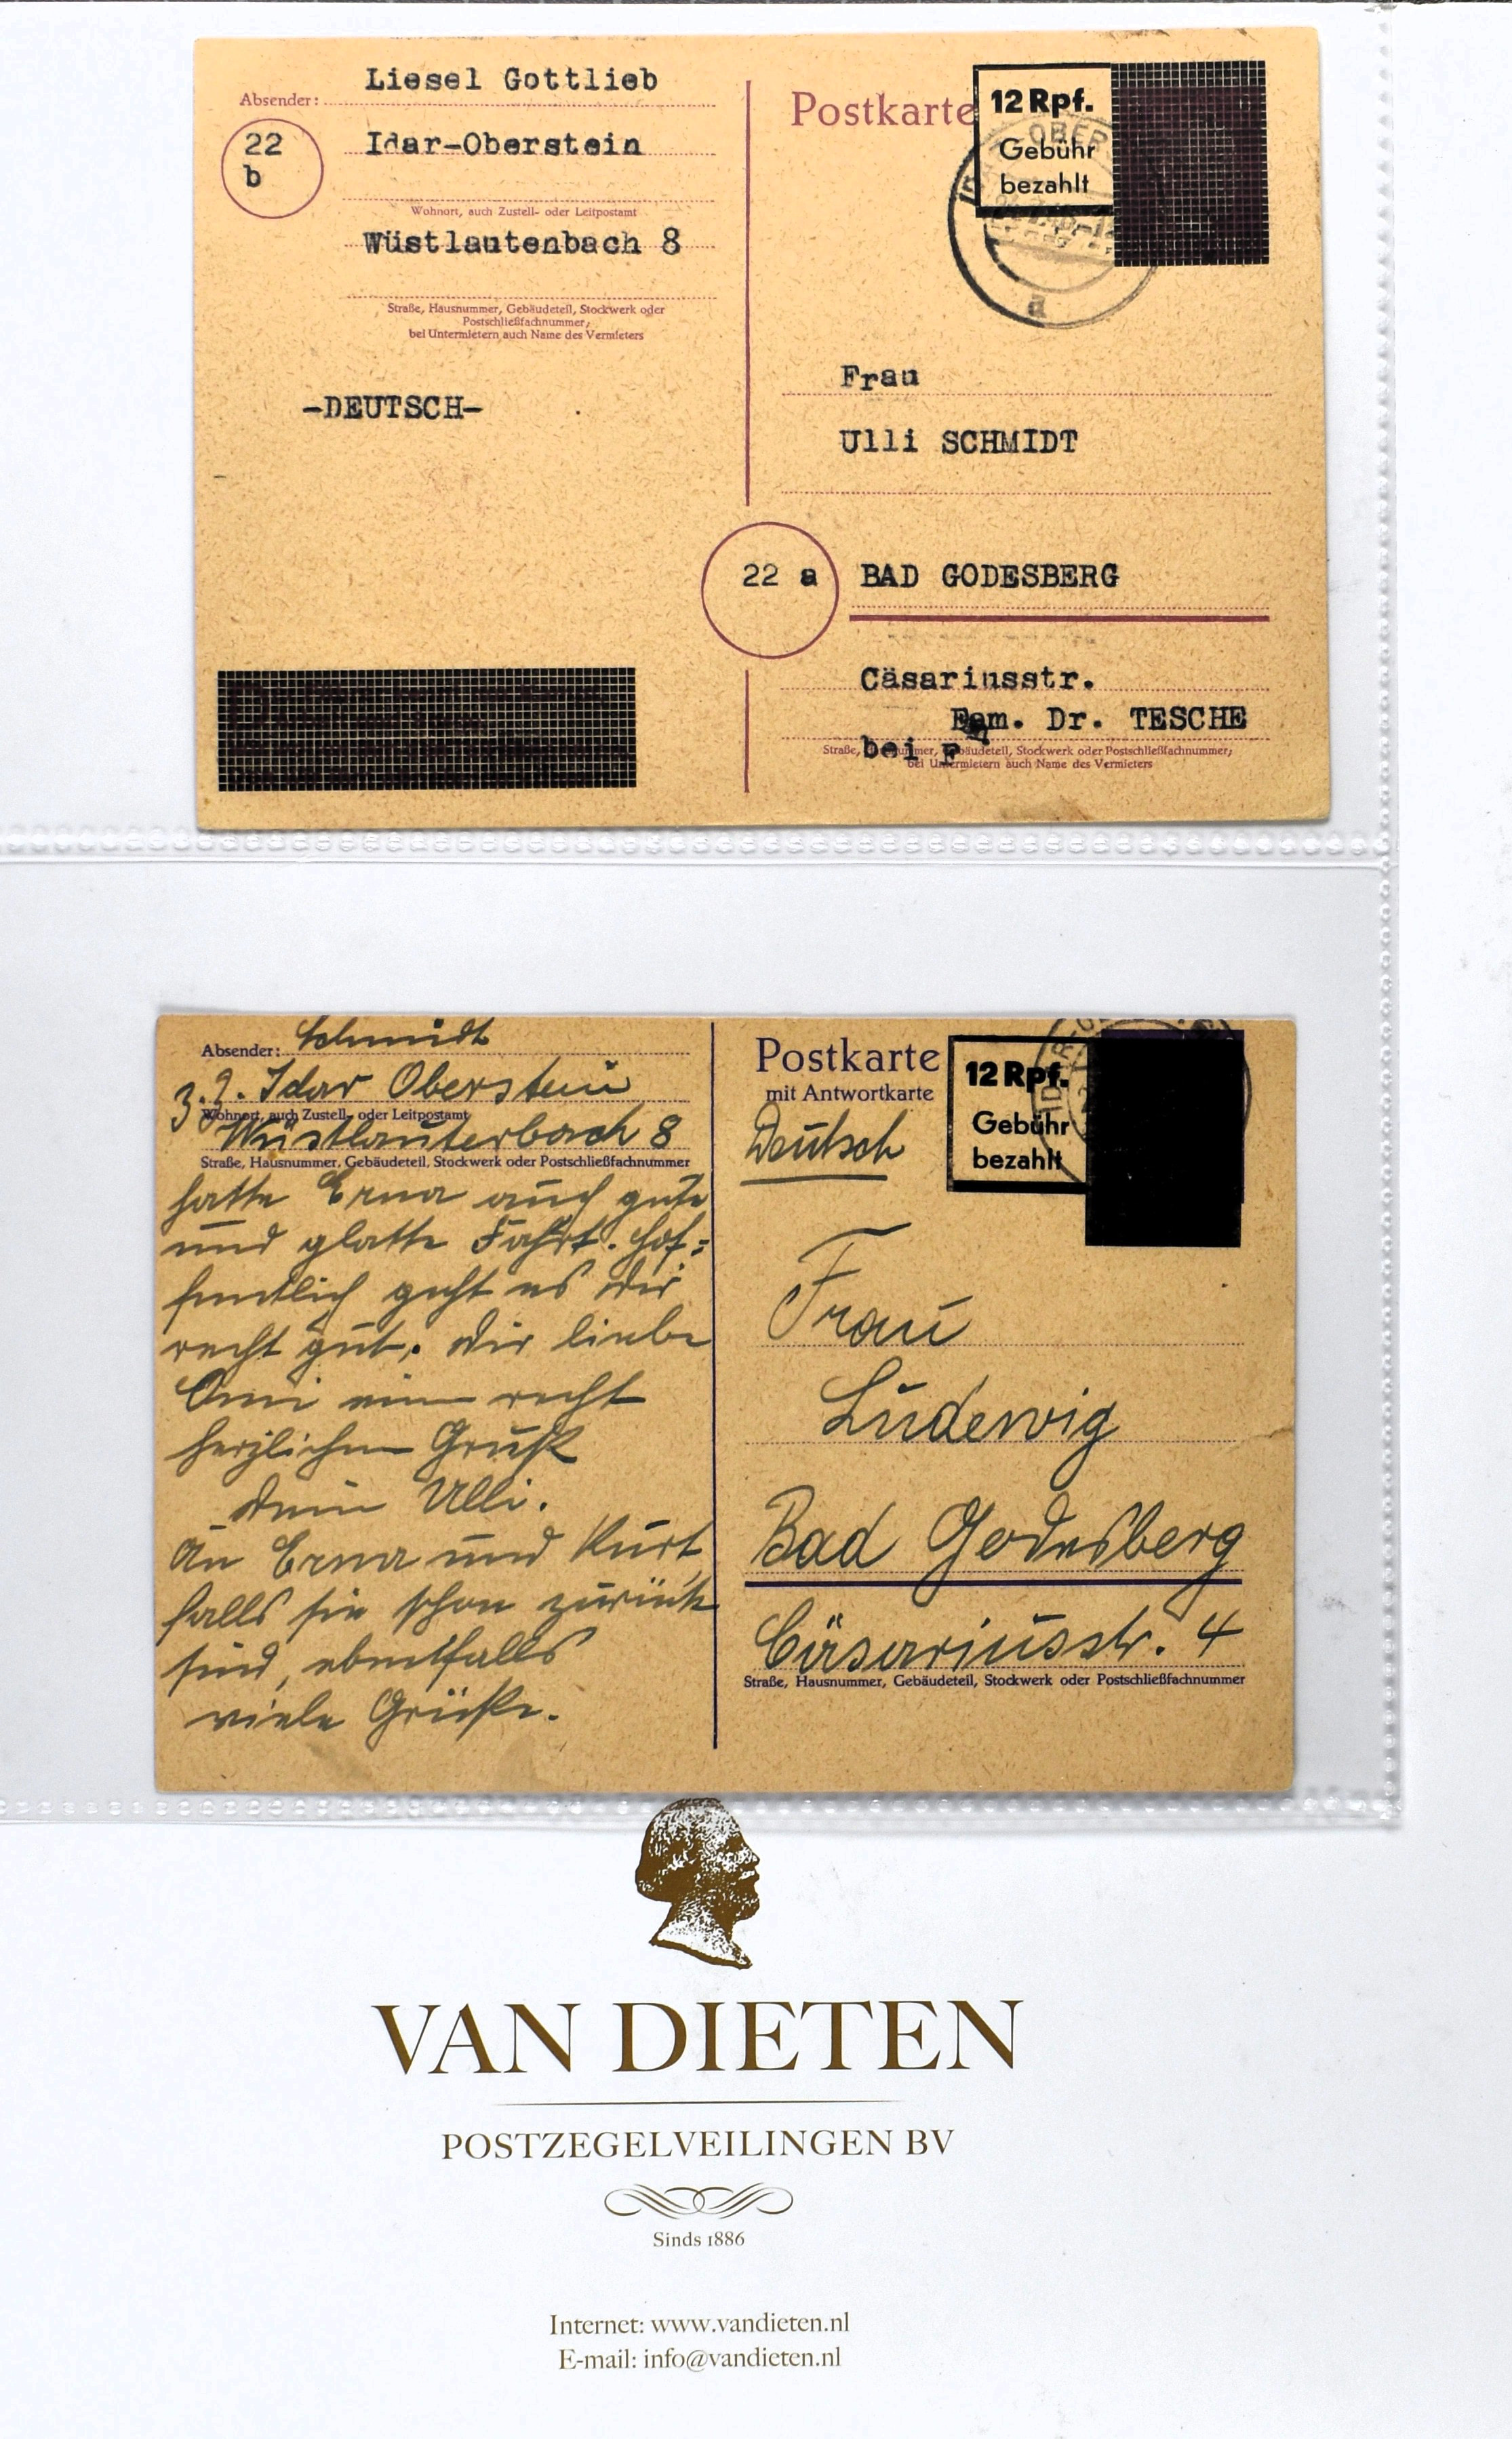 Liesel Gottlieb
Absender:
22
b
Idar-Oberstein
Wohnort, auch Zustell- oder Leitpostamt
Wüstlautenbach 8
Straße, Hausnummer, Gebäudeteil, Stockwerk oder
Postschließfachnummer;
bei Untermietern auch Name des Vermieters
-DEUTSCH-
Postkarte
12 Rpf.
Gebühr
bezahlt
OBER
a
Frau
Ulli SCHMIDT
22 a BAD GODESBERG
Cäsariusstr.
Fam. Dr. TESCHE
bei F
Straße, Hausnummer, Gebäudeteil, Stockwerk oder Postschließfachnummer;
bei Untermietern auch Name des Vermieters
Absender: Schmidt
z.Z. Idar Oberstein
Wohnort, auch Zustell- oder Leitpostamt
Wüstlauterbach 8
Straße, Hausnummer, Gebäudeteil, Stockwerk oder Postschließfachnummer
hatte Erna auch gute
und glatte Fahrt. Hof=
fentlich geht es Dir
recht gut. Dir liebe
Omi einen recht
herzlichen Gruß
Dein Ulli.
An Erna und Kurt,
falls sie schon zurück
sind, ebenfalls
viele Grüße.
Postkarte
mit Antwortkarte
Deutsch
12 Rpf.
Gebühr
bezahlt
Frau
Ludewig
Bad Godesberg
Cäsariusstr. 4
Straße, Hausnummer, Gebäudeteil, Stockwerk oder Postschließfachnummer
VAN DIETEN
POSTZEGELVEILINGEN BV
Sinds 1886
Internet: www.vandieten.nl
E-mail: info@vandieten.nl